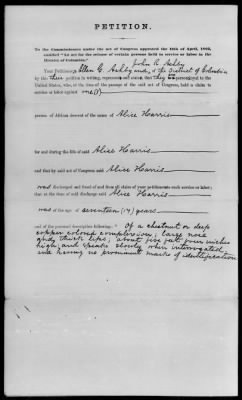 PETITION.
To the Commissioners under the act of Congress approved the 16th of April, 1862,
entitled "An act for the release of certain persons held to service or labor in the
District of Columbia."
John R. Ashby
Your Petitioners, Ellen C. Ashby and, of the District of Columbia
by this their petition in writing, represents and states, that they are persons loyal to the
United States, who, at the time of the passage of the said act of Congress, held a claim to
service or labor against one (1)
person of African descent of the name of Alice Harris
for and during the life of said Alice Harris
and that by said act of Congress said Alice Harris
was discharged and freed of and from all claim of your petitioners such service or labor;
that at the time of said discharge said Alice Harris
was of the age of seventeen (17) years
and of the personal description following: Of a chestnut or deep
copper colored complexion; large nose
and thick lips; about five feet four inches
high, and speaks slowly when interrogated
and having no prominent marks of identification